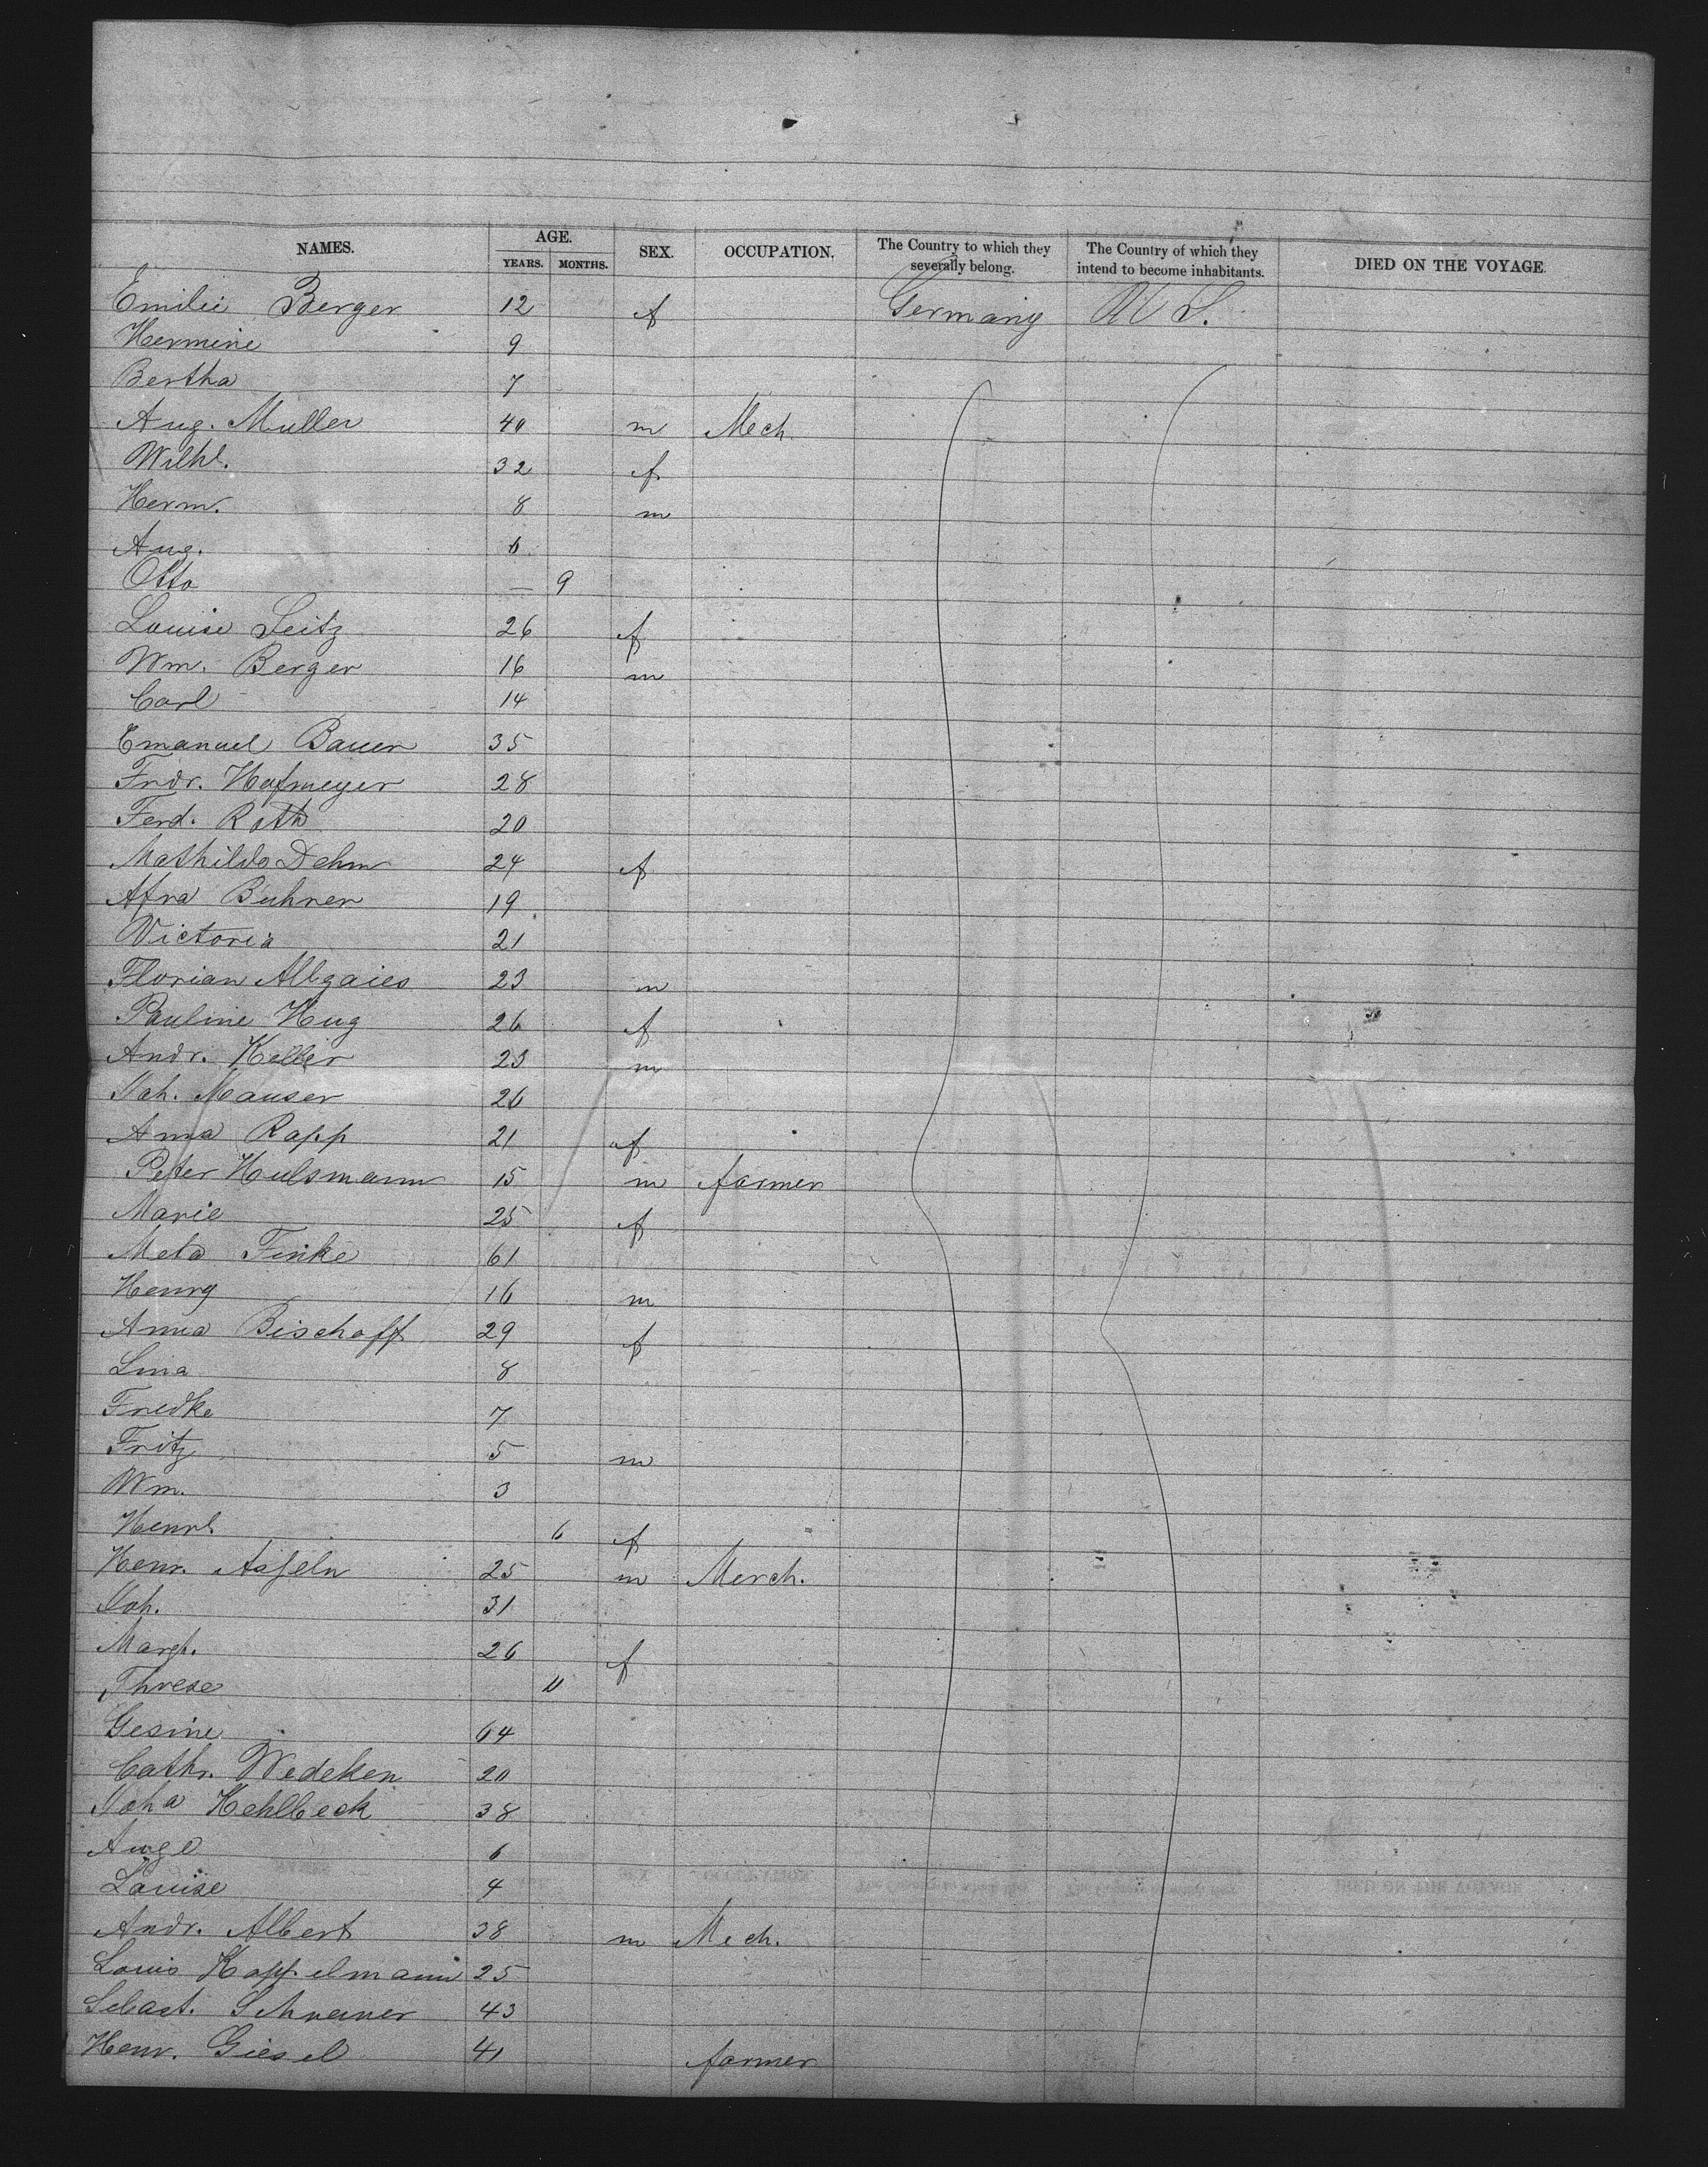 NAMES. AGE. SEX. OCCUPATION. The Country to which they severally belong. The Country of which they intend to become inhabitants. DIED ON THE VOYAGE.
YEARS. MONTHS.
Emilie Berger 12 f Germany U S.
Hermine 9
Bertha 7
Aug. Muller 40 m Mech.
Wilhl. 32 f
Herm. 8 m
Aug. 6
Otto — 9
Louise Seitz 26 f
Wm. Berger 16 m
Carl 14
Emanuel Bauer 35
Frdr. Hofmeyer 28
Ferd. Roth 20
Mathilde Dehm 24 f
Afra Buhrer 19
Victoria 21
Florian Allgaies 23 m
Pauline Hug 26 f
Andr. Keller 23 m
Joh. Mauser 26
Anna Rapp 21 f
Peter Hulsmann 15 m farmer
Marie 25 f
Meta Finke 61
Henry 16 m
Anna Bischoff 29 f
Lina 8
Fredke 7
Fritz 5 m
Wm. 3
Henrt. 6 f
Henr. 25 m Merch.
Joh. 31
Margt. 26 f
Threse 11
Gesine 64
Cathr. Wedeken 20
Joha Kehlbeck 38
Auge 6
Louise 4
Andr. Albert 38 m Mech.
Louis Kappelmann 25
Sebast. Schreiner 43
Henr. Giesel 41 farmer